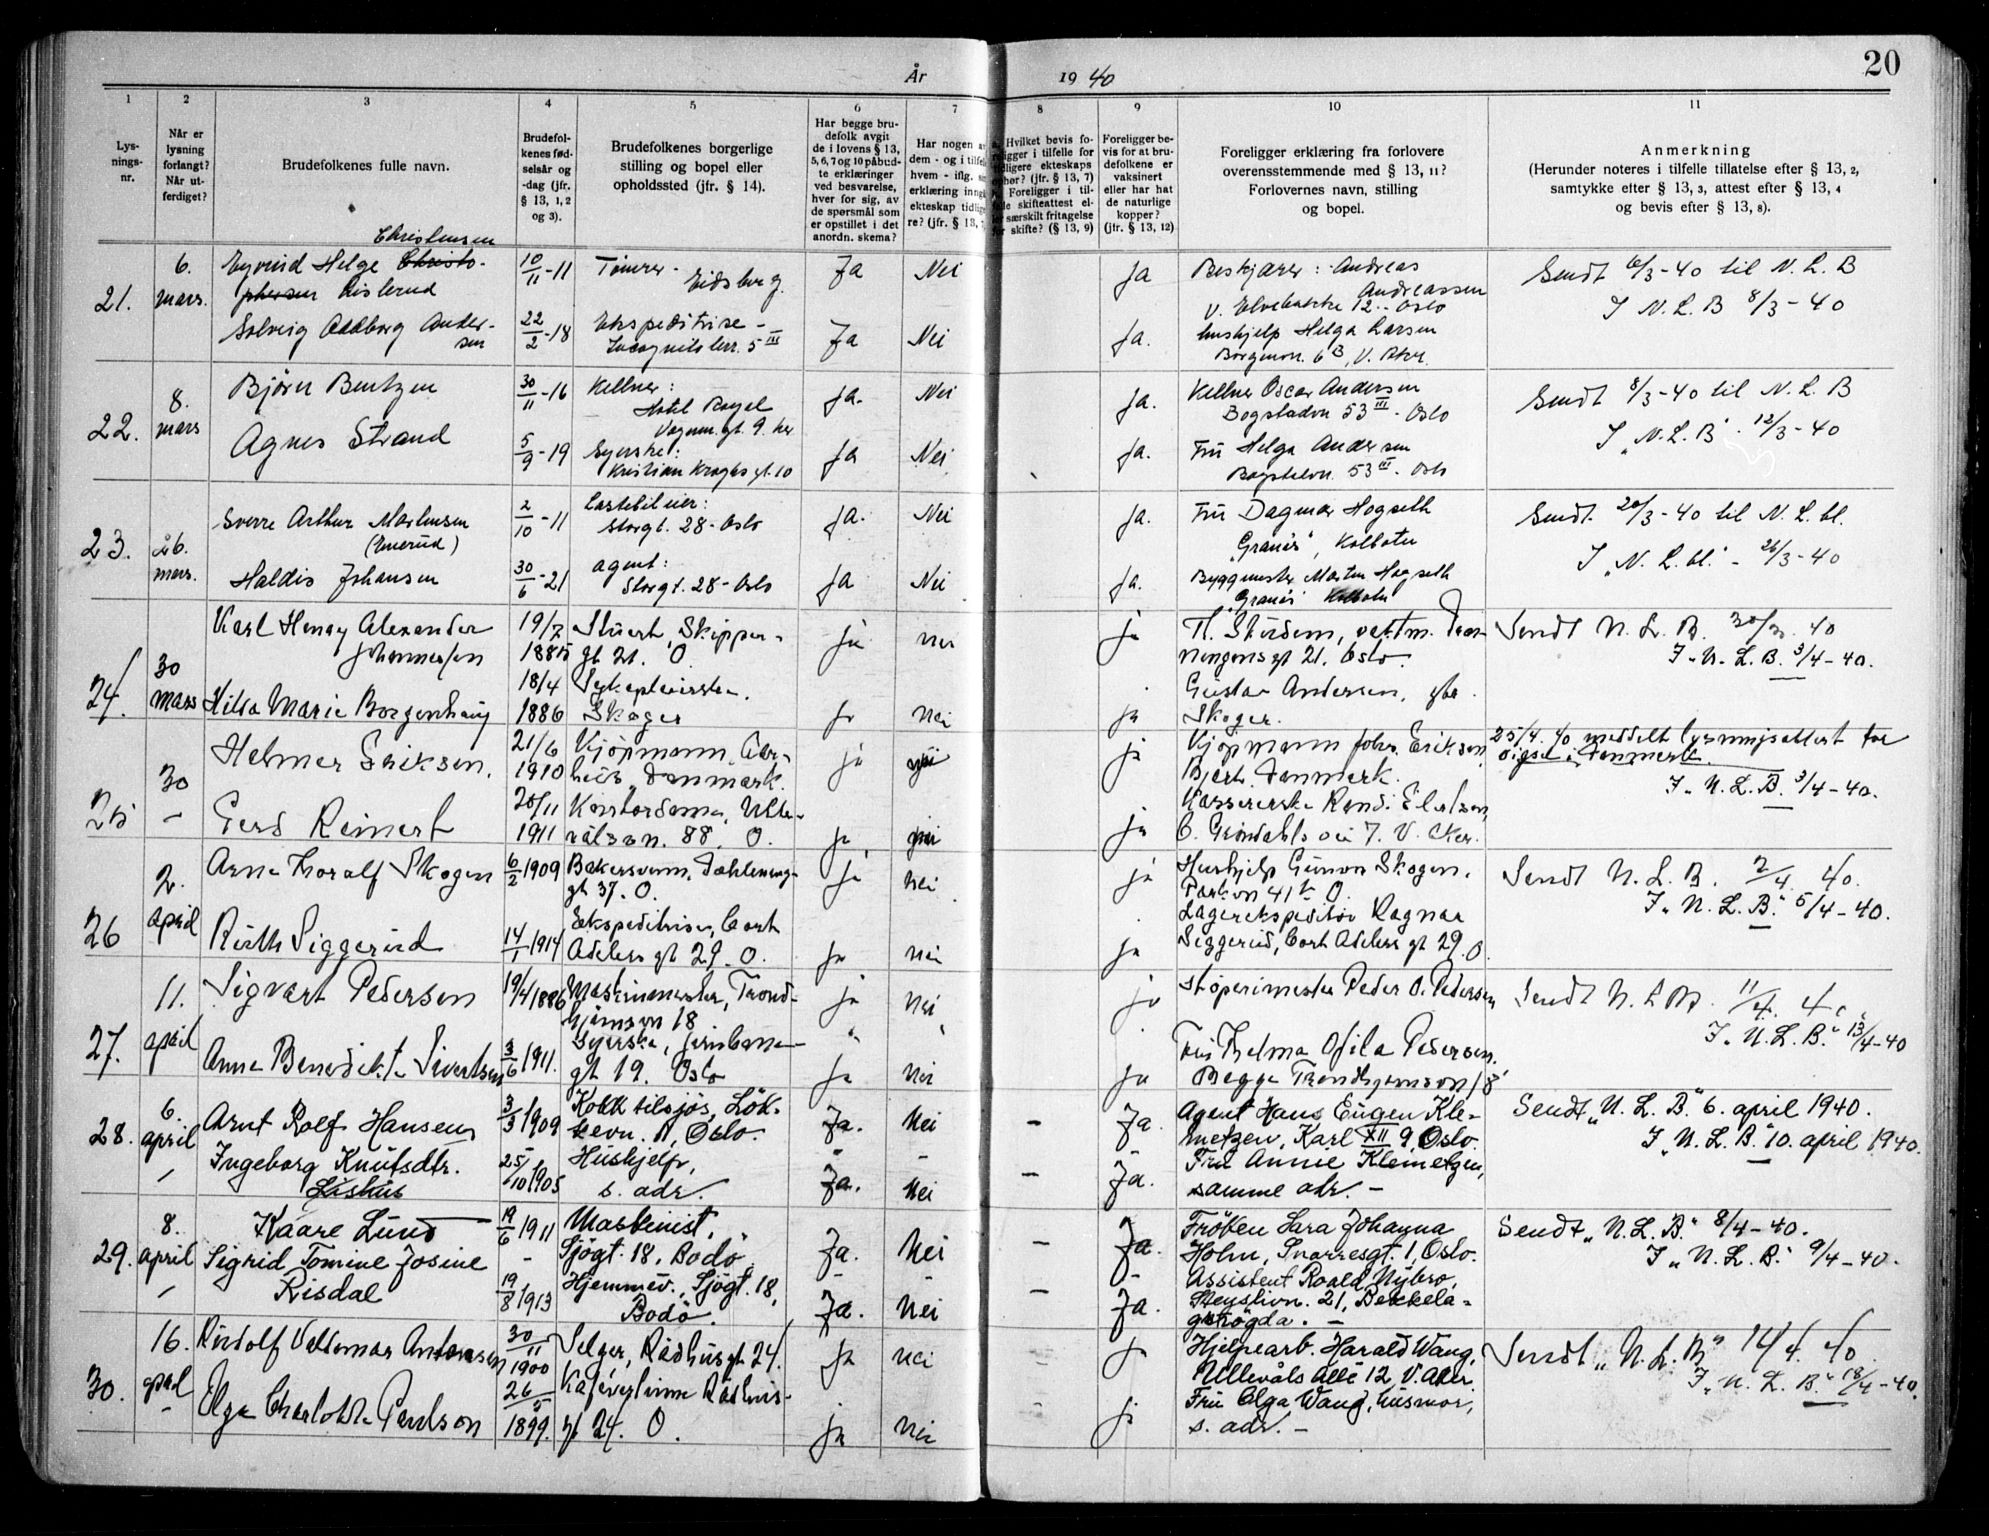 20
År 1940
1 2 3 4 5 6 7 8 9 10 11
Lysnings-nr.
Når er lysning forlangt? Når utferdiget?
Brudefolkenes fulle navn.
Brudefolkenes fødselsår og -dag (jfr. § 13, 1, 2 og 3).
Brudefolkenes borgerlige stilling og bopel eller opholdssted (jfr. § 14).
Har begge brudefolk avgitt de i lovens § 13, 5, 6, 7 og 10 påbudte erklæringer ved besvarelse, hver for sig, av de spørsmål som er opstillet i det anordn. skema?
Har nogen av dem - og i tilfelle hvem - iflg.
erklæring inng
ekteskap tidlige
re? (jfr. § 13,
Hvilket bevis fo-
religger i tilfelle for
tidligere ekteskaps
ophør? (jfr. § 13, 7)
Foreligger i til-
skifteattest el-
særskilt fritagelse
for skifte? (§ 13, 9)
Foreligger bevis for at brudefolkene er vaksinert eller har hat de naturlige kopper? (jfr. § 13, 12)
Foreligger erklæring fra forlovere overensstemmende med § 13, 11? Forlovernes navn, stilling og bopel.
Anmerkning
(Herunder noteres i tilfelle tillatelse efter § 13, 2,
samtykke efter § 13, 3, attest efter § 13, 4
og bevis efter § 13, 8).
Christensen
21. 6. mars.
Eyvind Helge Christo-
phersen Lislerud
10/11-11 Tømrer - Eidsberg. Ja Nei Ja
Beskjærer: Andreas
Andreassen
V. Elvebakke 12 - Oslo
Sendt 6/3-40 til N. L. B
I N. L. B 8/3-40
Solveig Aadborg Ander-
sen
22/2-18 Ekspeditrise -
Incognitoterr. 5 III
Ja Nei Ja.
Hushjelp Helga Larsen
Borgenvn. 6B, V. Aker
22. 8. mars
Björn Bentzen
30/11-16 Kellner:
Hotel Royal
Vognm. gt. 9. her
Ja. Nei Ja.
Kellner Oscar Andersen
Bogstadvn 53 III - Oslo
Sendt 8/3-40 til N. L. B
I „N. L. B" - 12/3-40
Agnes Strand
5/9-19 Syerske:
Kristian Kroghs gt. 10
Ja Nei Ja.
Fru Helga Andersen
Bogstadvn. 53 III - Oslo
23. 26. mars.
Sverre Arthur Martinsen
(Enerud)
2/10-11 Lastebileier:
Storgt. 28 - Oslo
Ja. Nei Ja.
Fru Dagmar Hogseth
„Granås", Kolbotn
Sendt 20/3-40 til N. L. bl.
I „N. L. bl." - 26/3-40
Haldis Johansen
30/6-21 agent:
Storgt. 28 - Oslo
Ja Nei Ja.
Byggmester Martin Hogseth
„Granås" Kolbotn
24. 30 mars
Karl Henry Alexander
Johannessen
19/7 1885 Stuert, Skipper-
gt 21. O.
ja nei ja
gt 21. Oslo.
Sendt N. L. B. 30/3. 40
I „N. L. B. 3/4-40.
Hilda Marie Borgenhaug
18/4 1886 Sykepleierske.
Skoger
ja nei ja
Gustav Andersen, gbr.
Skoger.
25 30 -
Helmer Eriksen.
21/6 1910 Kjöpmann, Aar-
hus, Danmark.
ja nei ja
Kjöpmann Johs. Eriksen,
Danmark.
25/4. 40 meddelt lysningsattest for
vigsel i Danmark.
I „N. L. B. 3/4-40.
Gerd Reinert
20/11 1911 Kontordame, Ulle-
vålsvn. 88. O.
ja nei ja
Kassererske Randi
C. Gröndahls vei 7. V. Aker.
26 2. april
Arne Thoralf Skogen
6/2 1909 Bakersvenn, Dahleneng-
gt 37. O.
ja nei ja
Hushjelp Gunvor Skogen,
Parkvn 41 O.
Sendt N. L. B. 2/4. 40.
I „N. L. B." 5/4-40.
Ruth Siggerud
14/1 1914 Ekspeditrise, Cort
Adelers gt 29. O.
ja nei ja
Lagerekspeditör Ragnar
Siggerud, Cort Adelers gt 29. O
27. 11. april
Sigvart Pedersen
19/4 1886 Maskinmester, Trond-
hjemsvn 18
ja nei ja
Støperimester Peder O. Pedersen
Sendt N. L. B. 11/4. 40.
I „N. L. B." 13/4-40
Anne Benedikte Sivertsen
3/6 1911. Syerske, Jernbane-
gt 19. Oslo
ja nei ja
Fru Thelma Ofila Pedersen.
Begge Trondhjemsvn 18
28. 6. april
Arnt Rolf Hansen
3/3 1909 Kokk tilsjös, Lök-
kevn. 11, Oslo.
Ja. Nei - Ja.
Agent Hans Eugen Kle-
metzen, Karl XII 9, Oslo.
Sendt „N. L. B." 6. april 1940.
I „N. L. B." 10. april 1940.
Ingeborg Knutsdtr.
Lishus
25/10 1905 Hushjelp,
s. adr.
Ja. Nei - Ja.
Fru Annie Klemetzen,
samme adr. -
29. 8. april
Kaare Lund
19/6 1911 Maskinist,
Sjögt. 18, Bodö
Ja. Nei - Ja.
Fröken Sara Johanna
Holm, Snarresgt. 1, Oslo.
Sendt „N. L. B." 8/4-40.
I „N. L. B." 9/4-40.
Sigrid Tomine Josine
Risdal
19/8 1913 Hjemmev., Sjögt. 18,
Bodö.
Ja. Nei - Ja.
Assistent Roald Nybro,
21, Bekkela-
gshögda. -
30. 16. april
Rudolf Valdemar Antonsen
30/11 1900 Selger, Rådhusgt 24.
ja nei - ja
Hjelpearb. Harald Wang,
Ullevåls allé 12, V. Aker
Sendt „N. L. B" 14/4. 40.
I „N. L. B." 18/4-40.
Elga Charlotte Paulson
26/5 1899. Kafévertinne Rådhus-
gt 24. O.
ja nei - ja
Fru Olga Wang, husmor,
s. adr. -